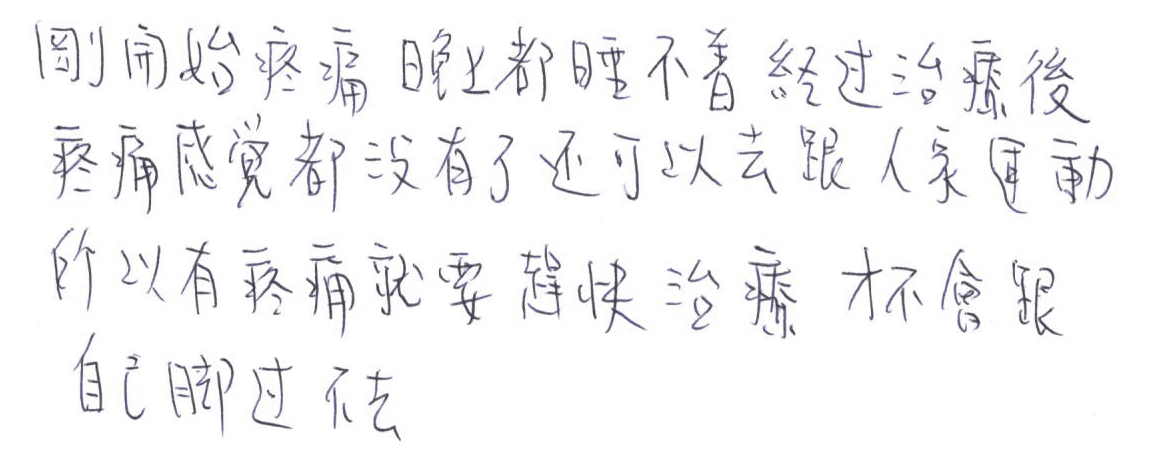 剛開始疼痛 晚上都睡不着 経过治療後
疼痛感覚都没有了还可以去跟人家運動
所以有疼痛就要趕快治療 才不會跟
自己脚过不去